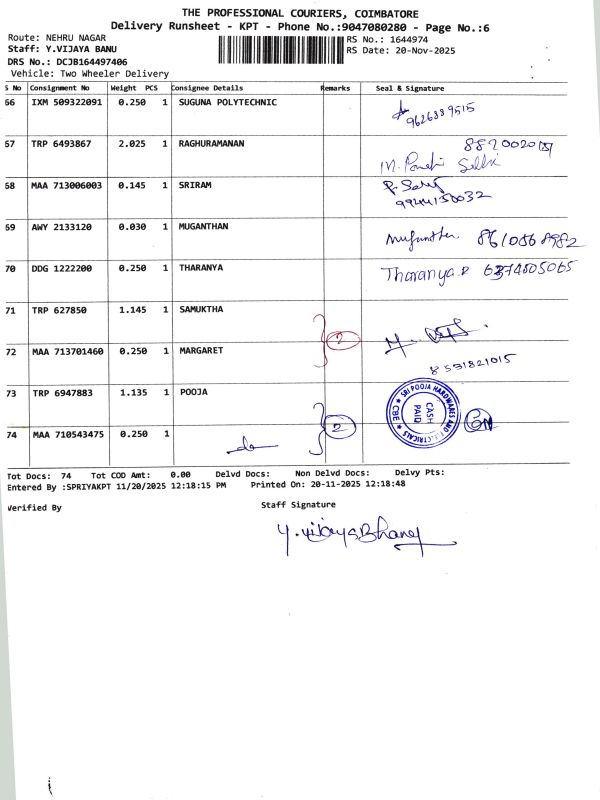 THE PROFESSIONAL COURIERS, COIMBATORE
Delivery Runsheet - KPT - Phone No.:9047080280 - Page No.:6
Route: NEHRU NAGAR RS No.: 1644974
Staff: Y.VIJAYA BANU RS Date: 20-Nov-2025
DRS No.: DCJB164497406
Vehicle: Two Wheeler Delivery
S No Consignment No Weight PCS Consignee Details Remarks Seal & Signature
66 IXM 509322091 0.250 1 SUGUNA POLYTECHNIC
9626339515
67 TRP 6493867 2.025 1 RAGHURAMANAN
M.
68 MAA 713006003 0.145 1 SRIRAM
9944150032
69 AWY 2133120 0.030 1 MUGANTHAN Muganthan
70 DDG 1222200 0.250 1 THARANYA Tharanya.P 6374805065
71 TRP 627850 1.145 1 SAMUKTHA
2
72 MAA 713701460 0.250 1 MARGARET 8531821015
73 TRP 6947883 1.135 1 POOJA
SRI POOJA HARDWARES AND ELECTRICALS
CBE
CASH
PAID
2
74 MAA 710543475 0.250 1 do
Tot Docs: 74 Tot COD Amt: 0.00 Delvd Docs: Non Delvd Docs: Delvy Pts:
Entered By :SPRIYAKPT 11/20/2025 12:18:15 PM Printed On: 20-11-2025 12:18:48
Verified By Staff Signature
Y.VijayaBhanu